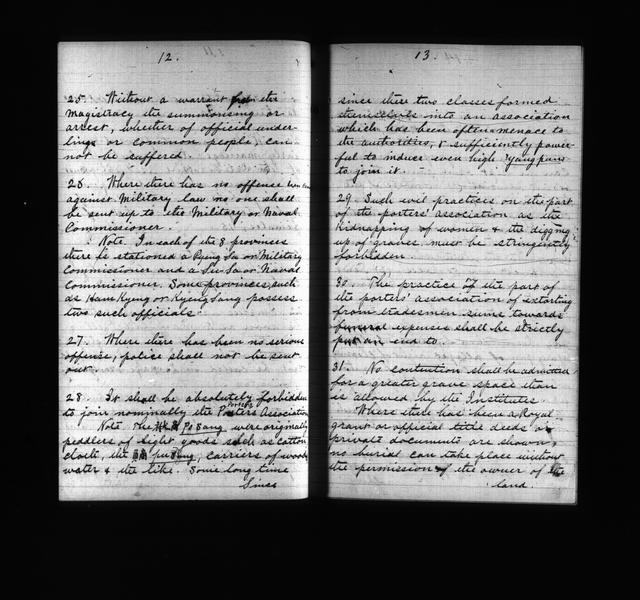 12.
25. Without a warrant from the
magistracy the summonsing or
arrest, whether of official under-
lings or common people, can
not be suffered.
26. Where there has no offence been
against Military law no one shall
be sent up to the Military or Naval
Commissioner.
Note. In each of the 8 provinces
there is stationed a Pyeng Sa or Military
Commissioner and a Siu Sa or Naval
Commissioner. Some provinces, such
as Ham Kyeng or Kyeng Sang possess
two such officials.
27. Where there has been no serious
offence, police shall not be sent
out.
28. It shall be absolutely forbidden
to join nominally the Porters Association
Note. The Po Sang were originally
peddlers of light goods such as cotton
cloth, the pu Sang, carriers of wood
water & the like. Some long time
since
13.
since these two classes formed
themselves into an association
which has been often menace to
the authorities, & sufficiently power-
ful to induce even high Yang pans
to join it.
29. Such evil practices on the part
of the porters' association as the
kidnapping of women & the digging
up of graves must be stringently
forbidden.
30. The practice of the part of
the porters' association of extorting
from tradesmen sums towards
funeral expenses shall be strictly
put an end to.
31. No contention shall be admitted
for a greater grave space than
is allowed by the Institutes.
Where there has been a Royal
grant or official title deeds or
private documents are shown,
no burial can take place without
the permission of the owner of the
land.